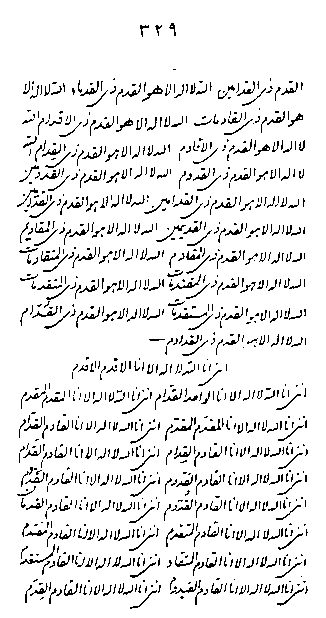 ٣٢٩
القدم ذی القدامین الله لا اله الا هو القدم ذی القدماء الله لا اله الا
هو القدم ذی القادمات الله لا اله الا هو القدم ذی الاقدام الله
لا اله الا هو القدم ذی الاقادم الله لا اله الا هو القدم ذی القدام الله
لا اله الا هو القدم ذی القدوم الله لا اله الا هو القدم ذی
الله لا اله الا هو القدم ذی القدامین الله لا اله الا هو القدم ذی
الله لا اله الا هو القدم ذی القدیمین الله لا اله الا هو القدم ذی المقادیم
الله لا اله الا هو القدم ذی المقادم الله لا اله الا هو القدم ذی المتقادمات
الله لا اله الا هو القدم ذی الله لا اله الا هو القدم ذی المتقدمات
الله لا اله الا هو القدم ذی المستقدمات الله لا اله الا هو القدم ذی القدام
الله لا اله الا هو القدم ذی القدادم —
اننی انا الله لا اله الا انا الاقدم الاقدم
اننی انا الله لا اله الا انا الواحد القدام اننی انا الله لا اله الا انا المقدم المقدم
اننی انا الله لا اله الا انا المقدم المقدم اننی انا الله لا اله الا انا القادم القدام
اننی انا الله لا اله الا انا القادم القدام اننی انا الله لا اله الا انا القادم القدام
اننی انا الله لا اله الا انا القادم القدم اننی انا الله لا اله الا انا القادم القدوم
اننی انا الله لا اله الا انا القادم القدوم اننی انا الله لا اله الا انا القادم القدمان
اننی انا الله لا اله الا انا القادم المتقدم اننی انا الله لا اله الا انا القادم المقدم
اننی انا الله لا اله الا انا القادم المتقادم اننی انا الله لا اله الا انا القادم المستقدم
اننی انا الله لا اله الا انا القادم القیدوم اننی انا الله لا اله الا انا القادم القیدم